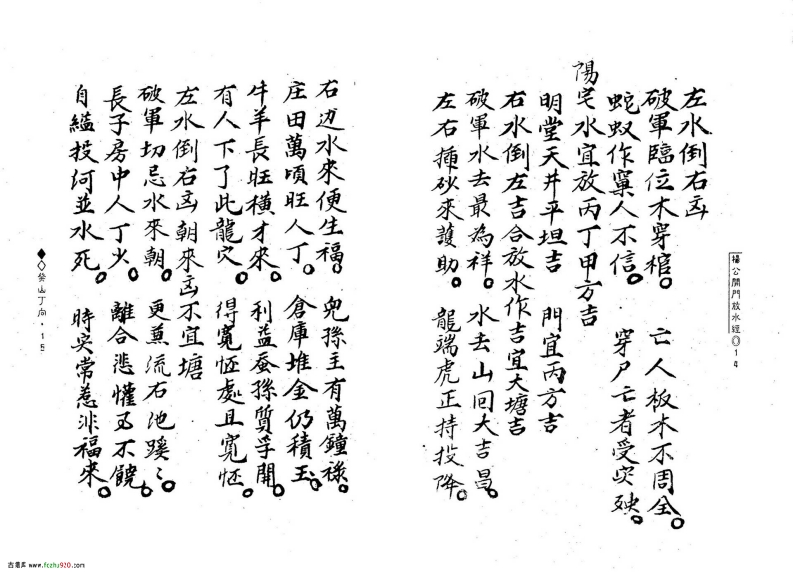 左水倒右凶
破軍臨位木穿棺。 亡人板木不周全。
蛇蚁作窠人不信。 穿尸亡者受灾殃。
陽宅水宜放丙丁甲方吉
明堂天井平坦吉 門宜丙方吉
右水倒左吉合放水作吉宜大塘吉
破軍水去最為祥。 水去山回大吉昌。
左右插砂來護助。 龍端虎正持投降。
楊公開門放水經◎14
右边水來便生福。 兒孫主有萬鐘祿。
庄田萬頃旺人丁。 倉庫堆金仍積玉。
牛羊長旺橫才來。 利益蚕孫質孚開。
有人下了此龍穴。 得寬怀處且寬怀。
左水倒右凶朝來凶不宜塘
破軍切忌水來朝。 更蒽流石池蹊々。
長子房中人丁少。 離合悲懽丑不饒。
自縊投河並水死。 時灾常惹非福來。
◆◇癸山丁向·15
古易库 www.fczhu920.com